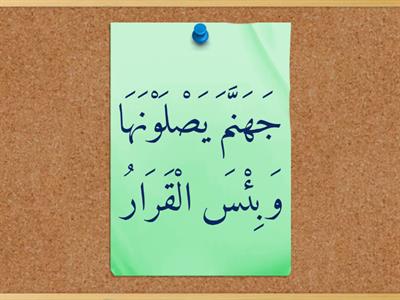 جَهَنَّمَ يَصْلَوْنَهَا
وَبِئْسَ الْقَرَارُ